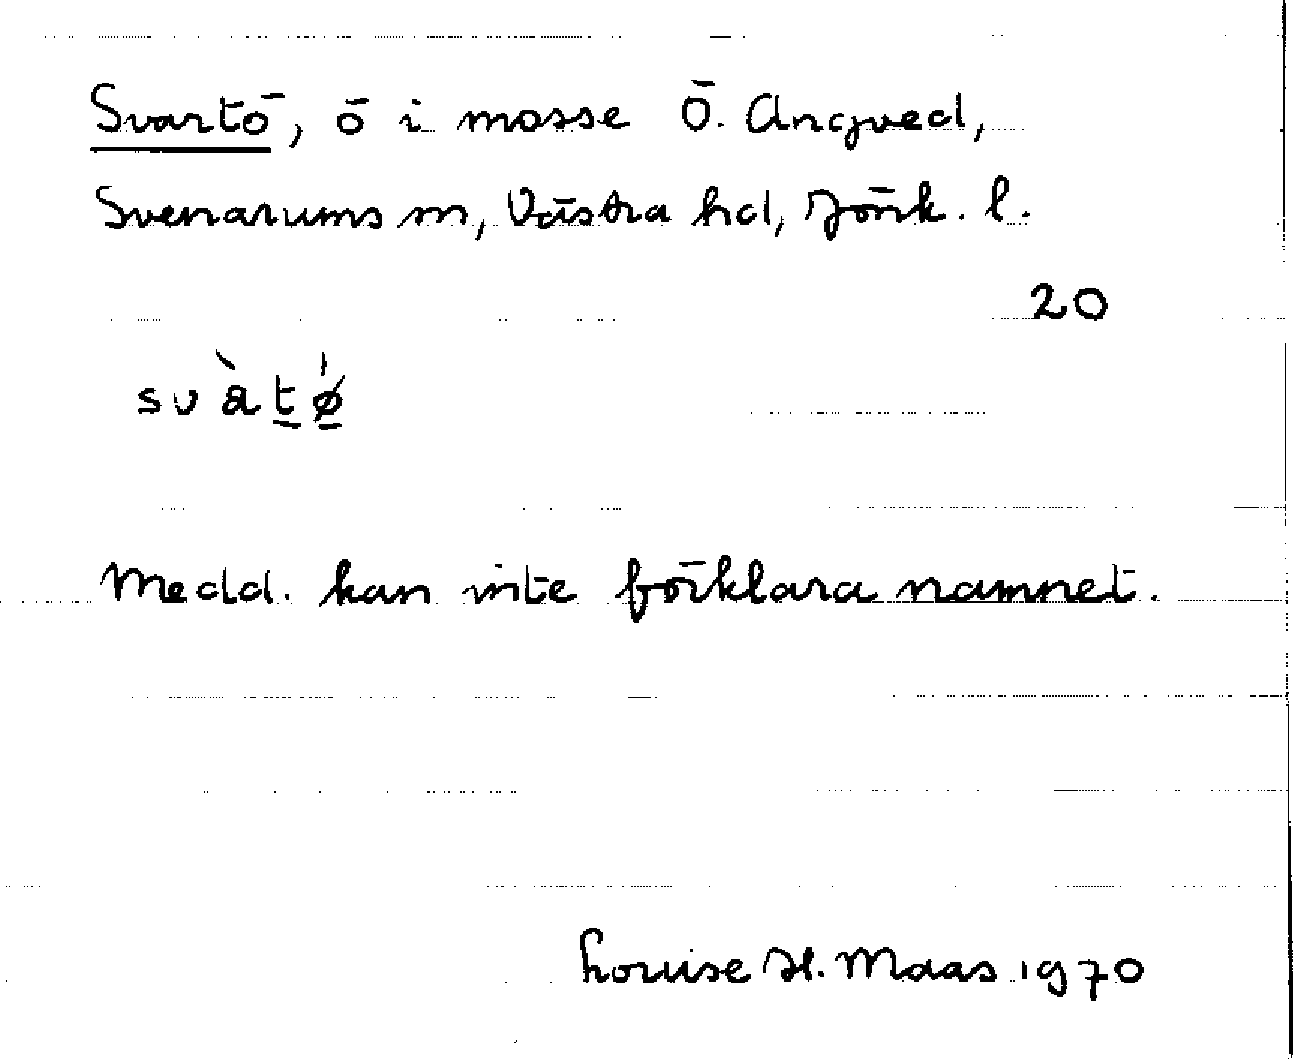 Svartö, ö i mosse Ö. Angved,
Svenarums sn, Västra hd, Jönk. l.
20
svàtǿ
Medd. kan inte förklara namnet.
Louise H. Maas 1970